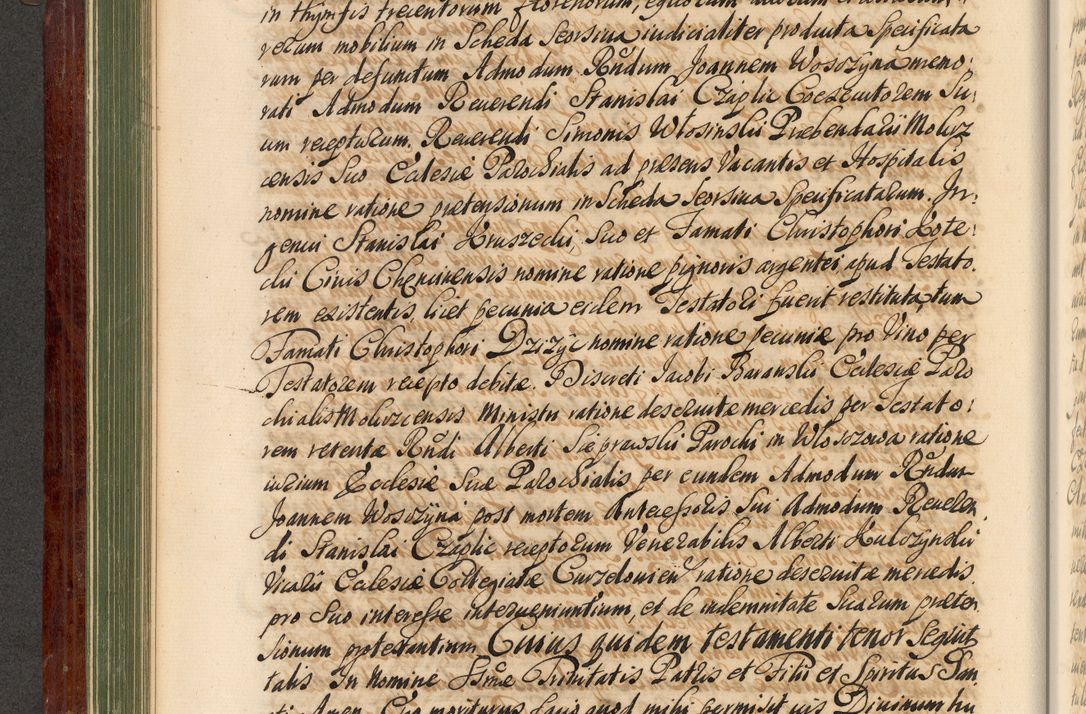 in thymfis trecentorum florenorum,
rerum mobilium in Scheda Seorsiva iudicialiter producta Specificata
rum per defunctum Admodum Rñdum Joannem Woszczyna memo:
rati Admodum Reuerendi Stanislai Czaplic Coexecutorem Su:
um receptarum. Reuerendi Simonis Włosinskii Præbendarii Moluz
censis Suo Ecclesiæ Parochialis ad præsens Vacantis et Hospitalis
nomine ratione prætensionum in Scheda Seorsiva Specificatarum. In:
genui Stanislai Kruszecki, Suo et Famati Christophori Kote:
chi Civis Chencinensis nomine ratione pignoris argentei apud Testato:
rem existentis, licet pecunia eidem Testatori fuerit restituta, tum
Famati Christophori Dzizyc nomine ratione pecuniæ pro Vino per
Testatorem recepto debitæ. Discreti Jacobi Baranskii Ecclesiæ Paro
chialis Moluzcensis Ministri ratione deseruitæ mercedis per Testato:
rem retentæ Rñdi Alberti Sieprawskii Parochi in Włosczowa ratione
iurium Ecclesiæ Suæ Parochialis per eundem Admodum Rñdum
Joannem Wosczyna post mortem Antecessoris Sui Admodum Reueren
di Stanislai Czaplic receptorum Venerabilis Alberti Kulczynskii
Vicarii Ecclesiæ Collegiatæ Curzelouien ratione deseruitæ mercedis
pro Suo interesse interuenientium, et de indemnitate Suarum præten
sionum protestantium Cuius quidem testamenti tenor Sequit
talis In Nomine SSmæ Trinitatis Patris et Filii et Spiritus San
cti Amen. Ego moriturus Scio quod mihi permisit ius Diuinum hu